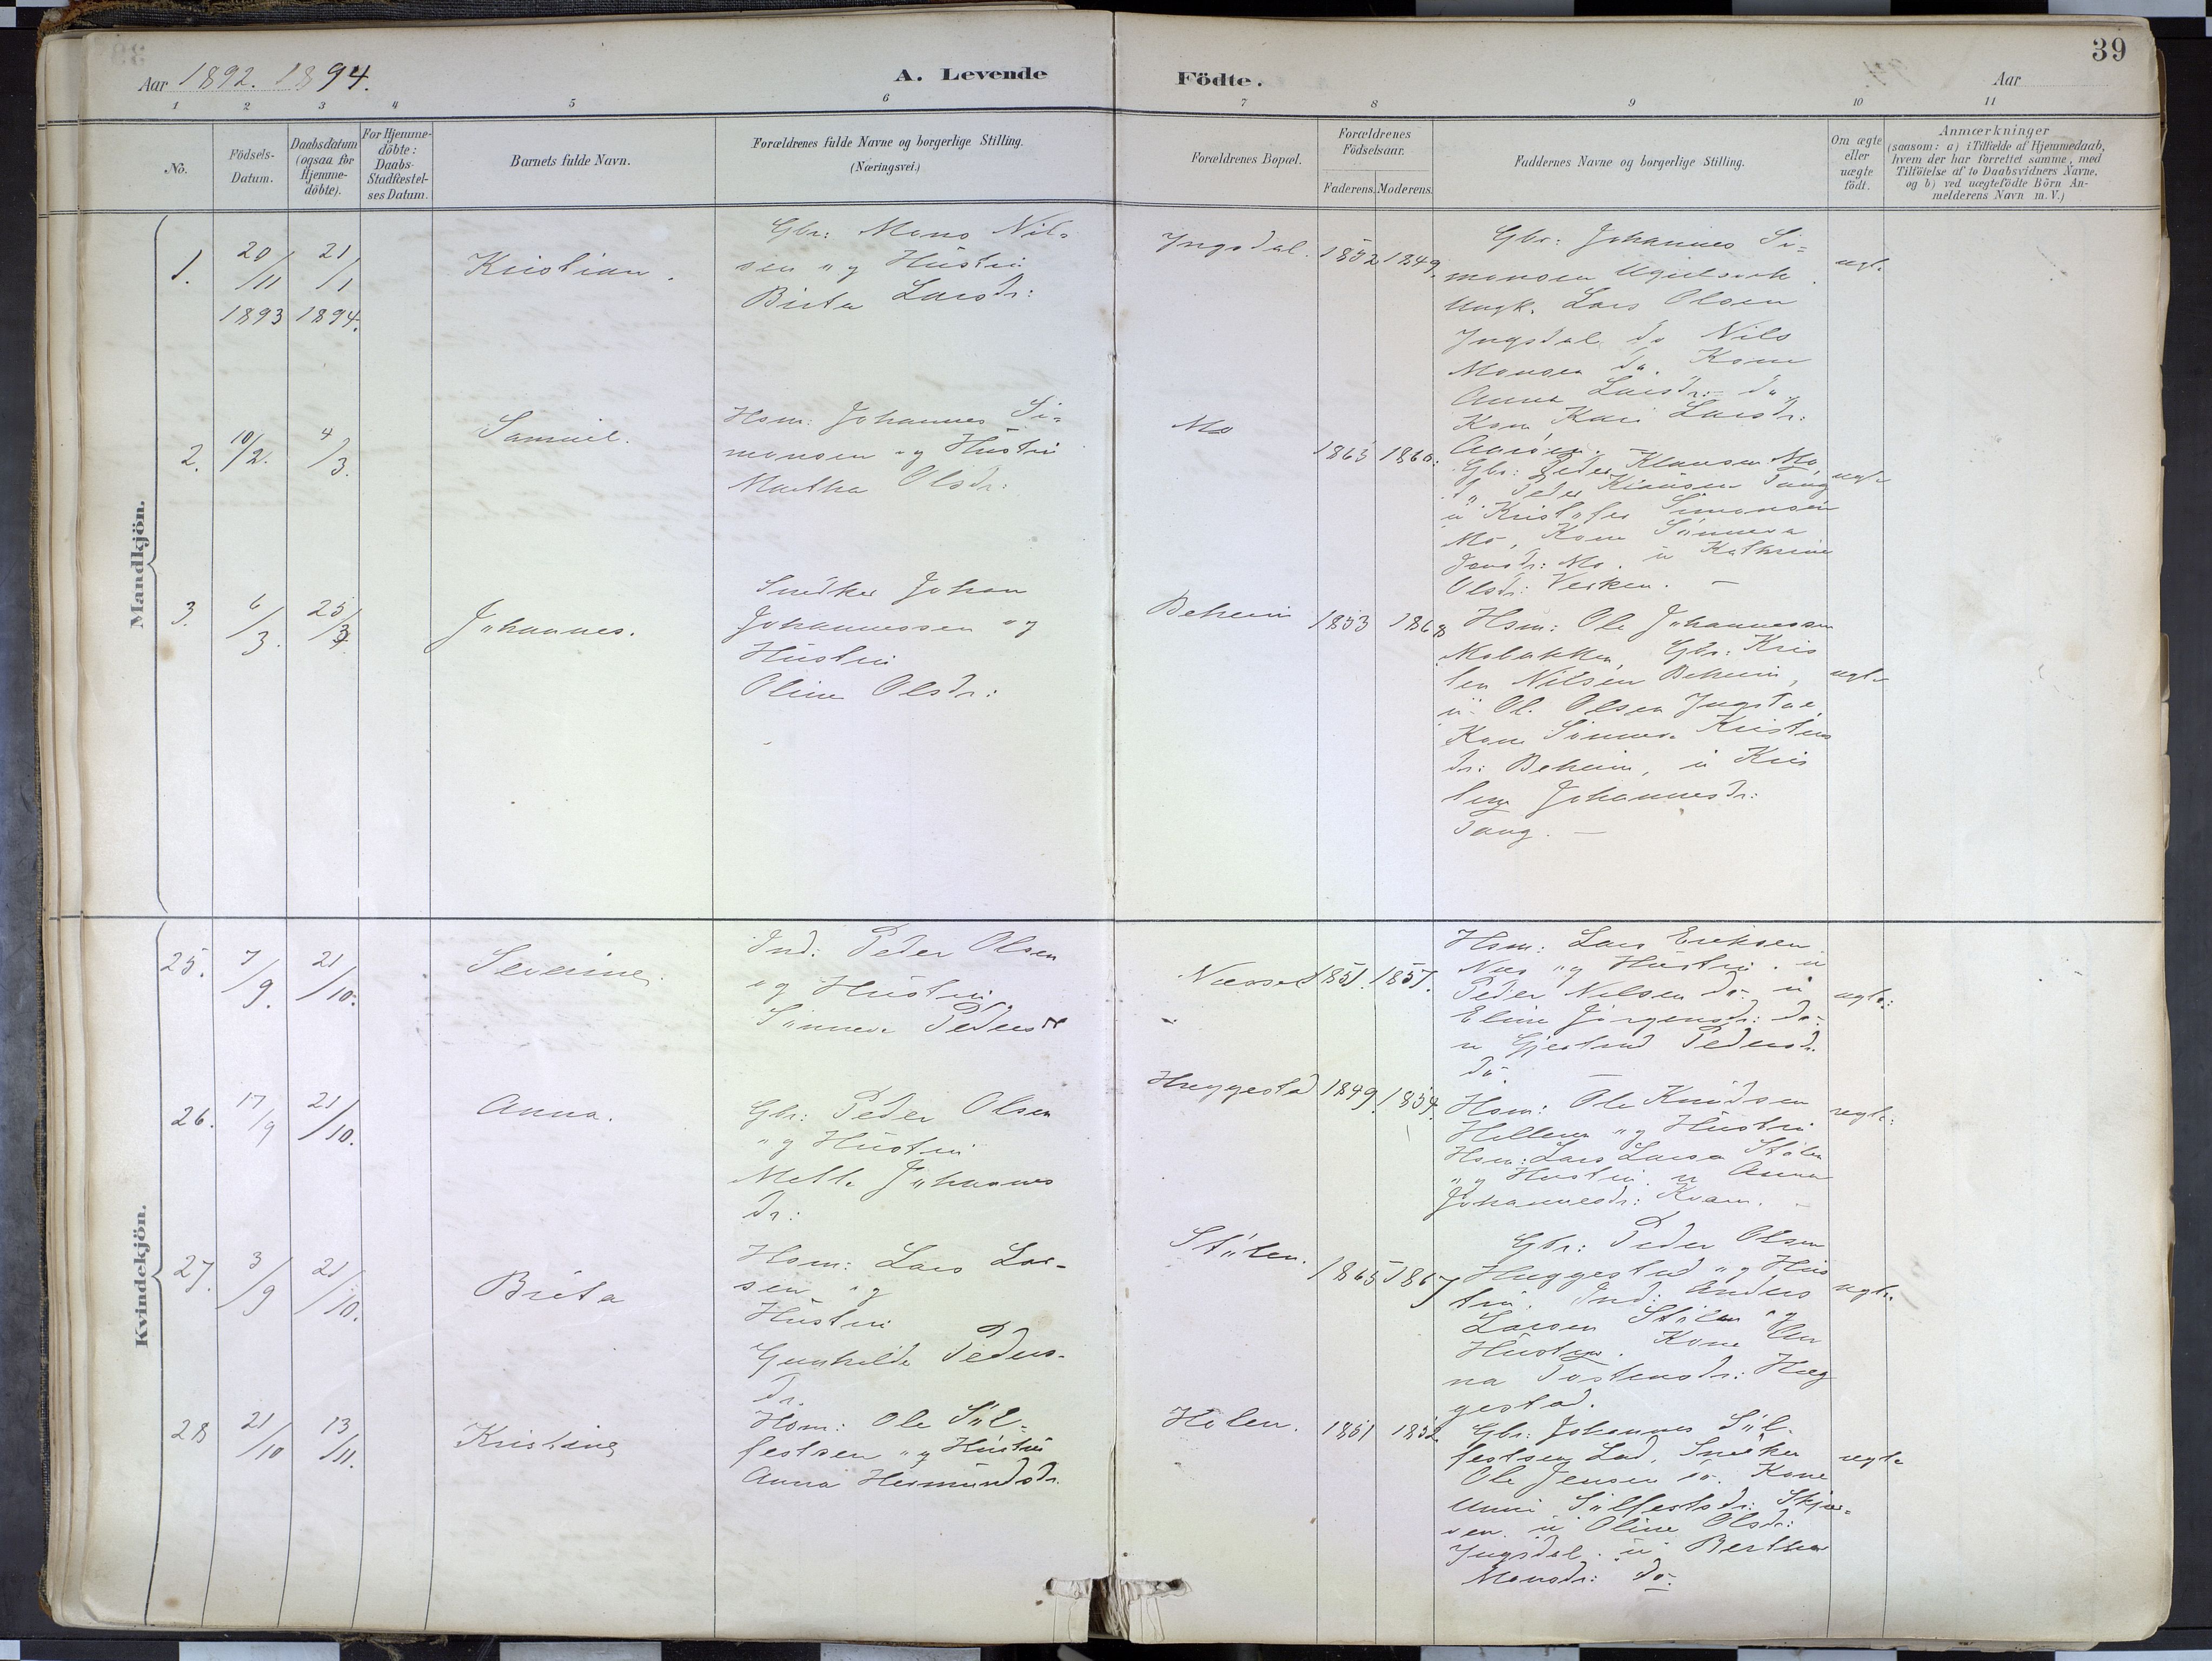 39
Aar 1892. 1894.
A. Levende
Födte.
Aar
1 2 3 4 5 6 7 8 9 10 11
No.
Födsels-
Datum.
Daabsdatum
(ogsaa for
Hjemme-
döbte).
For Hjemme-
döbte:
Daabs-
Stadfæstel-
ses Datum.
Barnets fulde Navn.
Forældrenes fulde Navne og borgerlige Stilling.
(Næringsvei.)
Forældrenes Bopæl.
Forældrenes
Födselsaar.
Faderens. Moderens.
Faddernes Navne og borgerlige Stilling.
Om ægte
eller
uægte
födt.
Anmærkninger
(saasom: a) i Tilfælde af Hjemmedaab,
hvem der har forrettet samme, med
Tilföielse af to Daabsvidners Navne,
og b) ved uægtefödte Börn An-
melderens Navn m. V.)
Mandkjön.
1.
20/11
1893
21/1
1894.
Kristian.
Gbr: Mons Nil-
sen og Hustru
Brita Larsdr:
Yngsdal.
1852 1849.
Gbr: Johannes Si-
monsen
Ungk. Lars Olsen
Yngsdal do Nils
Monsen do. Kone
Anna Larsdr: do
Kone Kari Larsdr:
ægte
2.
10/2.
4/3.
Samuel.
Hsm: Johannes Si-
monsen og Hustru
Martha Olsdr:
Mo
1863 1860:
Gbr: Peder Klausen Mo,
" Peder Klausen Tang
" Kristofer Simonsen
Mo, Kone Sünneva
Jonsdr: Mo. " Kathrine
Olsdr: Verken. —
ægte
3.
6/3.
25/3
Johannes.
Snedker Johan
Johannessen og
Hustru
Oline Olsdr:
Beheim
1853 1868
Hsm: Ole Johannessen
Mobakken, Gbr: Kris
ten Nilsen Beheim,
" Ol. Olsen
Kone Sünneva Kristens
dr: Beheim, " Kris
Johannesdr:
Tang. —
ægte
Kvindekjön.
25.
7/9.
21/10.
Severine
Ind: Peder Olsen
og Hustru
Sünneva Pedersdr
1851. 1857.
Hsm: Lars Eriksen
Næs og Hustru. "
Peder Nilsen do. "
Eline Jörgensdr: do.
" Gjertrud Pedersdr.
do. —
ægte:
26.
17/9
21/10.
Anna.
Gbr: Peder Olsen
og Hustru
Mette Johannes
dr:
Huggestad
1849. 1854.
Hsm: Ole Knudsen
Hellene og Hustru
Hsm: Lars Larsen Stölen
og Hustru. " Anna
Johannesdr: Kvam. -
ægte:
27.
3/9
21/10.
Brita
Hsm: Lars Lar-
sen og
Hustru
Gunhilde Peders-
dr.
Stölen.
1865 1867
Gbr: Peder Olsen
Huggestad og Hus
tru. Ind: Anders
Larsen Stölen og
Hustru. Kone An
na Tostensdr: Hug
gestad.
ægte
28
21/10
13/11.
Kristine
Hsm: Ole Söl-
festsen og Hustru
Anna Hermundsdr.
Holen.
1851 1852.
Gbr: Johannes Söl-
festsen Lad, Snedker
Ole Jensen do. Kone
Unni Sölfestsdr: Skjær-
ven. " Oline Olsdr:
Yngsdal. " Bertha
Monsdr: do.
ægte